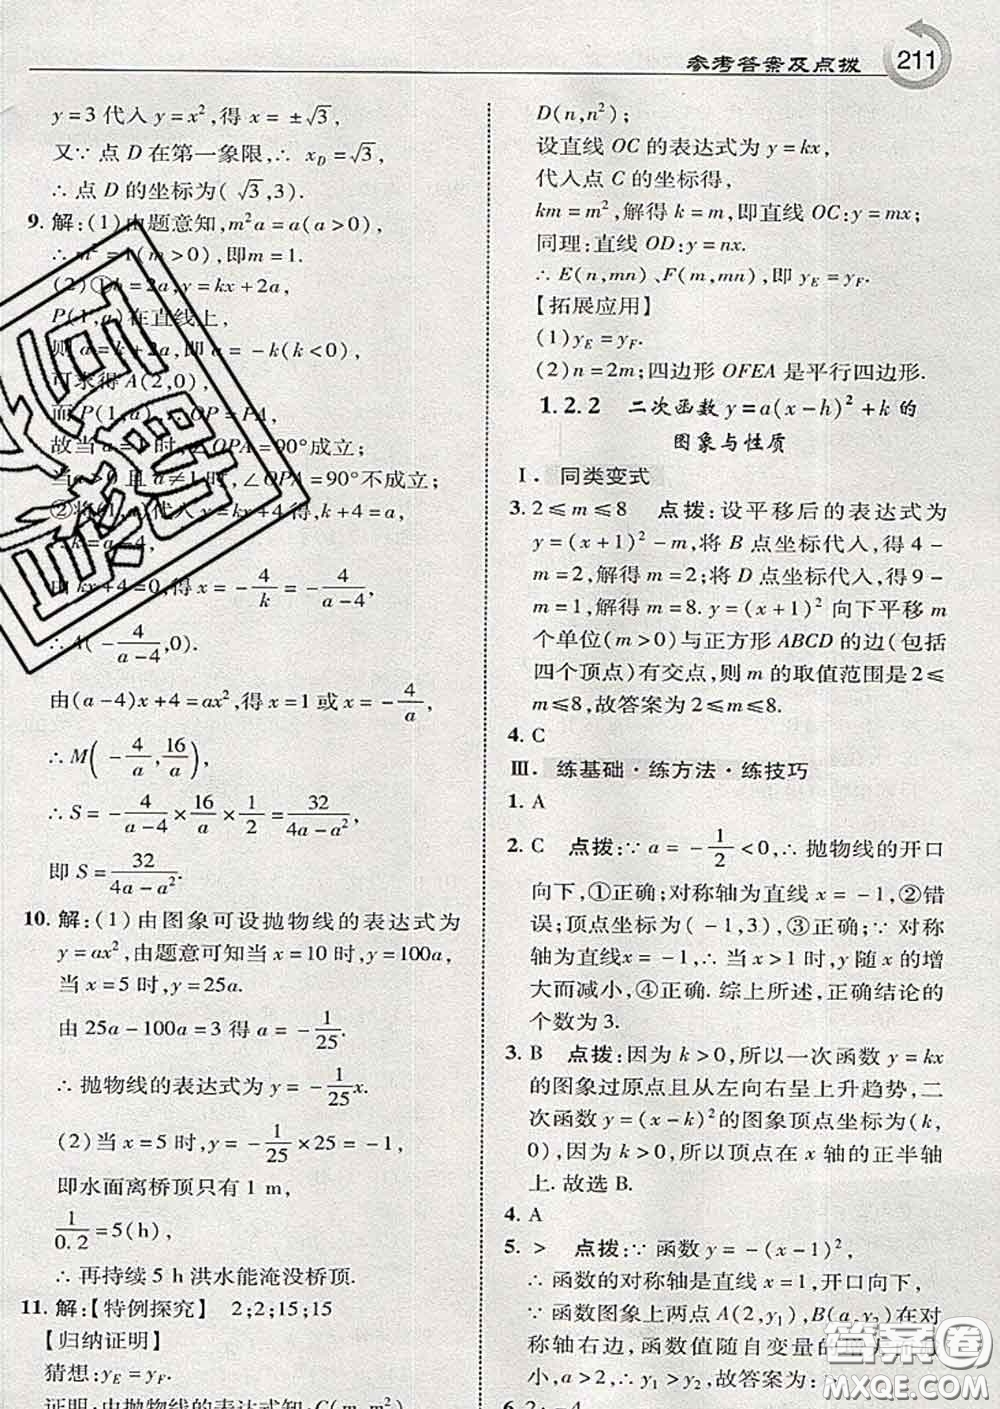 参考答案及点拨
211
y=3 代入 y=x²,得 x=±√3,
又∵ 点 D 在第一象限,∴ x_D=√3,
∴ 点 D 的坐标为(√3,3).
9. 解:(1)由题意知,m²a=a(a>0),
∴ m²=1(m>0),即m=1.
(2)①b=2a,y=kx+2a,
P(1,a)在直线上,
则 a=k+2a,a=-k(k<0),
可求得 A(2,0),
而 P(1,a),OP=PA,
故当 a=1 时,∠OPA=90°成立;
当 a>0 且 a≠1 时,∠OPA=90°不成立;
②将(1,a)代入 y=kx+4得,k+4=a,
∴k=a-4,
由 kx+4=0,得 x=-4/k=-4/(a-4),
∴ A(-4/(a-4),0).
由(a-4)x+4=ax²,得 x=1或 x=-4/a,
∴ M(-4/a,16/a),
∴ S=-4/(a-4)×16/a×1/2=32/(4a-a²),
即 S=32/(4a-a²).
10. 解:(1)由图象可设抛物线的表达式为
y=ax²,由题意可知当 x=10 时,y=100a,
当 x=5 时,y=25a.
由 25a-100a=3 得 a=-1/25.
∴ 抛物线的表达式为 y=-1/25x.
(2)当 x=5 时,y=-1/25×25=-1,
即水面离桥顶只有 1 m,
1/0.2=5(h),
∴ 再持续 5 h 洪水能淹没桥顶.
11. 解:【特例探究】 2;2;15;15
【归纳证明】
猜想:y_E=y_F.
证明:由抛物线的表达式知:C(m,m²)
D(n,n²);
设直线 OC 的表达式为 y=kx,
代入点 C 的坐标得,
km=m²,解得 k=m,即直线 OC:y=mx;
同理:直线 OD:y=nx.
∴ E(n,mn)、F(m,mn),即 y_E=y_F.
【拓展应用】
(1)y_E=y_F.
(2)n=2m;四边形 OFEA 是平行四边形.
1.2.2 二次函数 y=a(x-h)²+k 的
图象与性质
Ⅰ. 同类变式
3. 2≤m≤8 点拨:设平移后的表达式为
y=(x+1)²-m,将 B 点坐标代入,得 4-
m=2,解得 m=2;将 D 点坐标代入,得9-
m=1,解得 m=8. y=(x+1)² 向下平移 m
个单位(m>0)与正方形 ABCD 的边(包括
四个顶点)有交点,则 m 的取值范围是 2≤
m≤8,故答案为 2≤m≤8.
4. C
Ⅲ. 练基础·练方法·练技巧
1. A
2. C 点拨:∵ a=-1/2<0,∴ 抛物线的开口
向下,①正确;对称轴为直线 x=-1,②错
误;顶点坐标为(-1,3),③正确;∵ 对称
轴为直线x=-1,∴ 当 x>1 时,y 随 x 的增
大而减小,④正确. 综上所述,正确结论的
个数为 3.
3. B 点拨:因为 k>0,所以一次函数 y=kx
的图象过原点且从左向右呈上升趋势,二
次函数 y=(x-k)²的图象顶点坐标为(k,
0),因为 k>0,所以顶点在 x 轴的正半轴
上. 故选 B.
4. A
5. > 点拨:∵ 函数 y=-(x-1)²,
∴ 函数的对称轴是直线 x=1,开口向下.
∵ 函数图象上两点 A(2,y₁),B(a,y₂)在对
称轴右边,函数值随自变量的增大而减
小,a>2,∴ y₁>y₂,故答案为:>.
6. 2;-4
答案圈
MXQE.COM